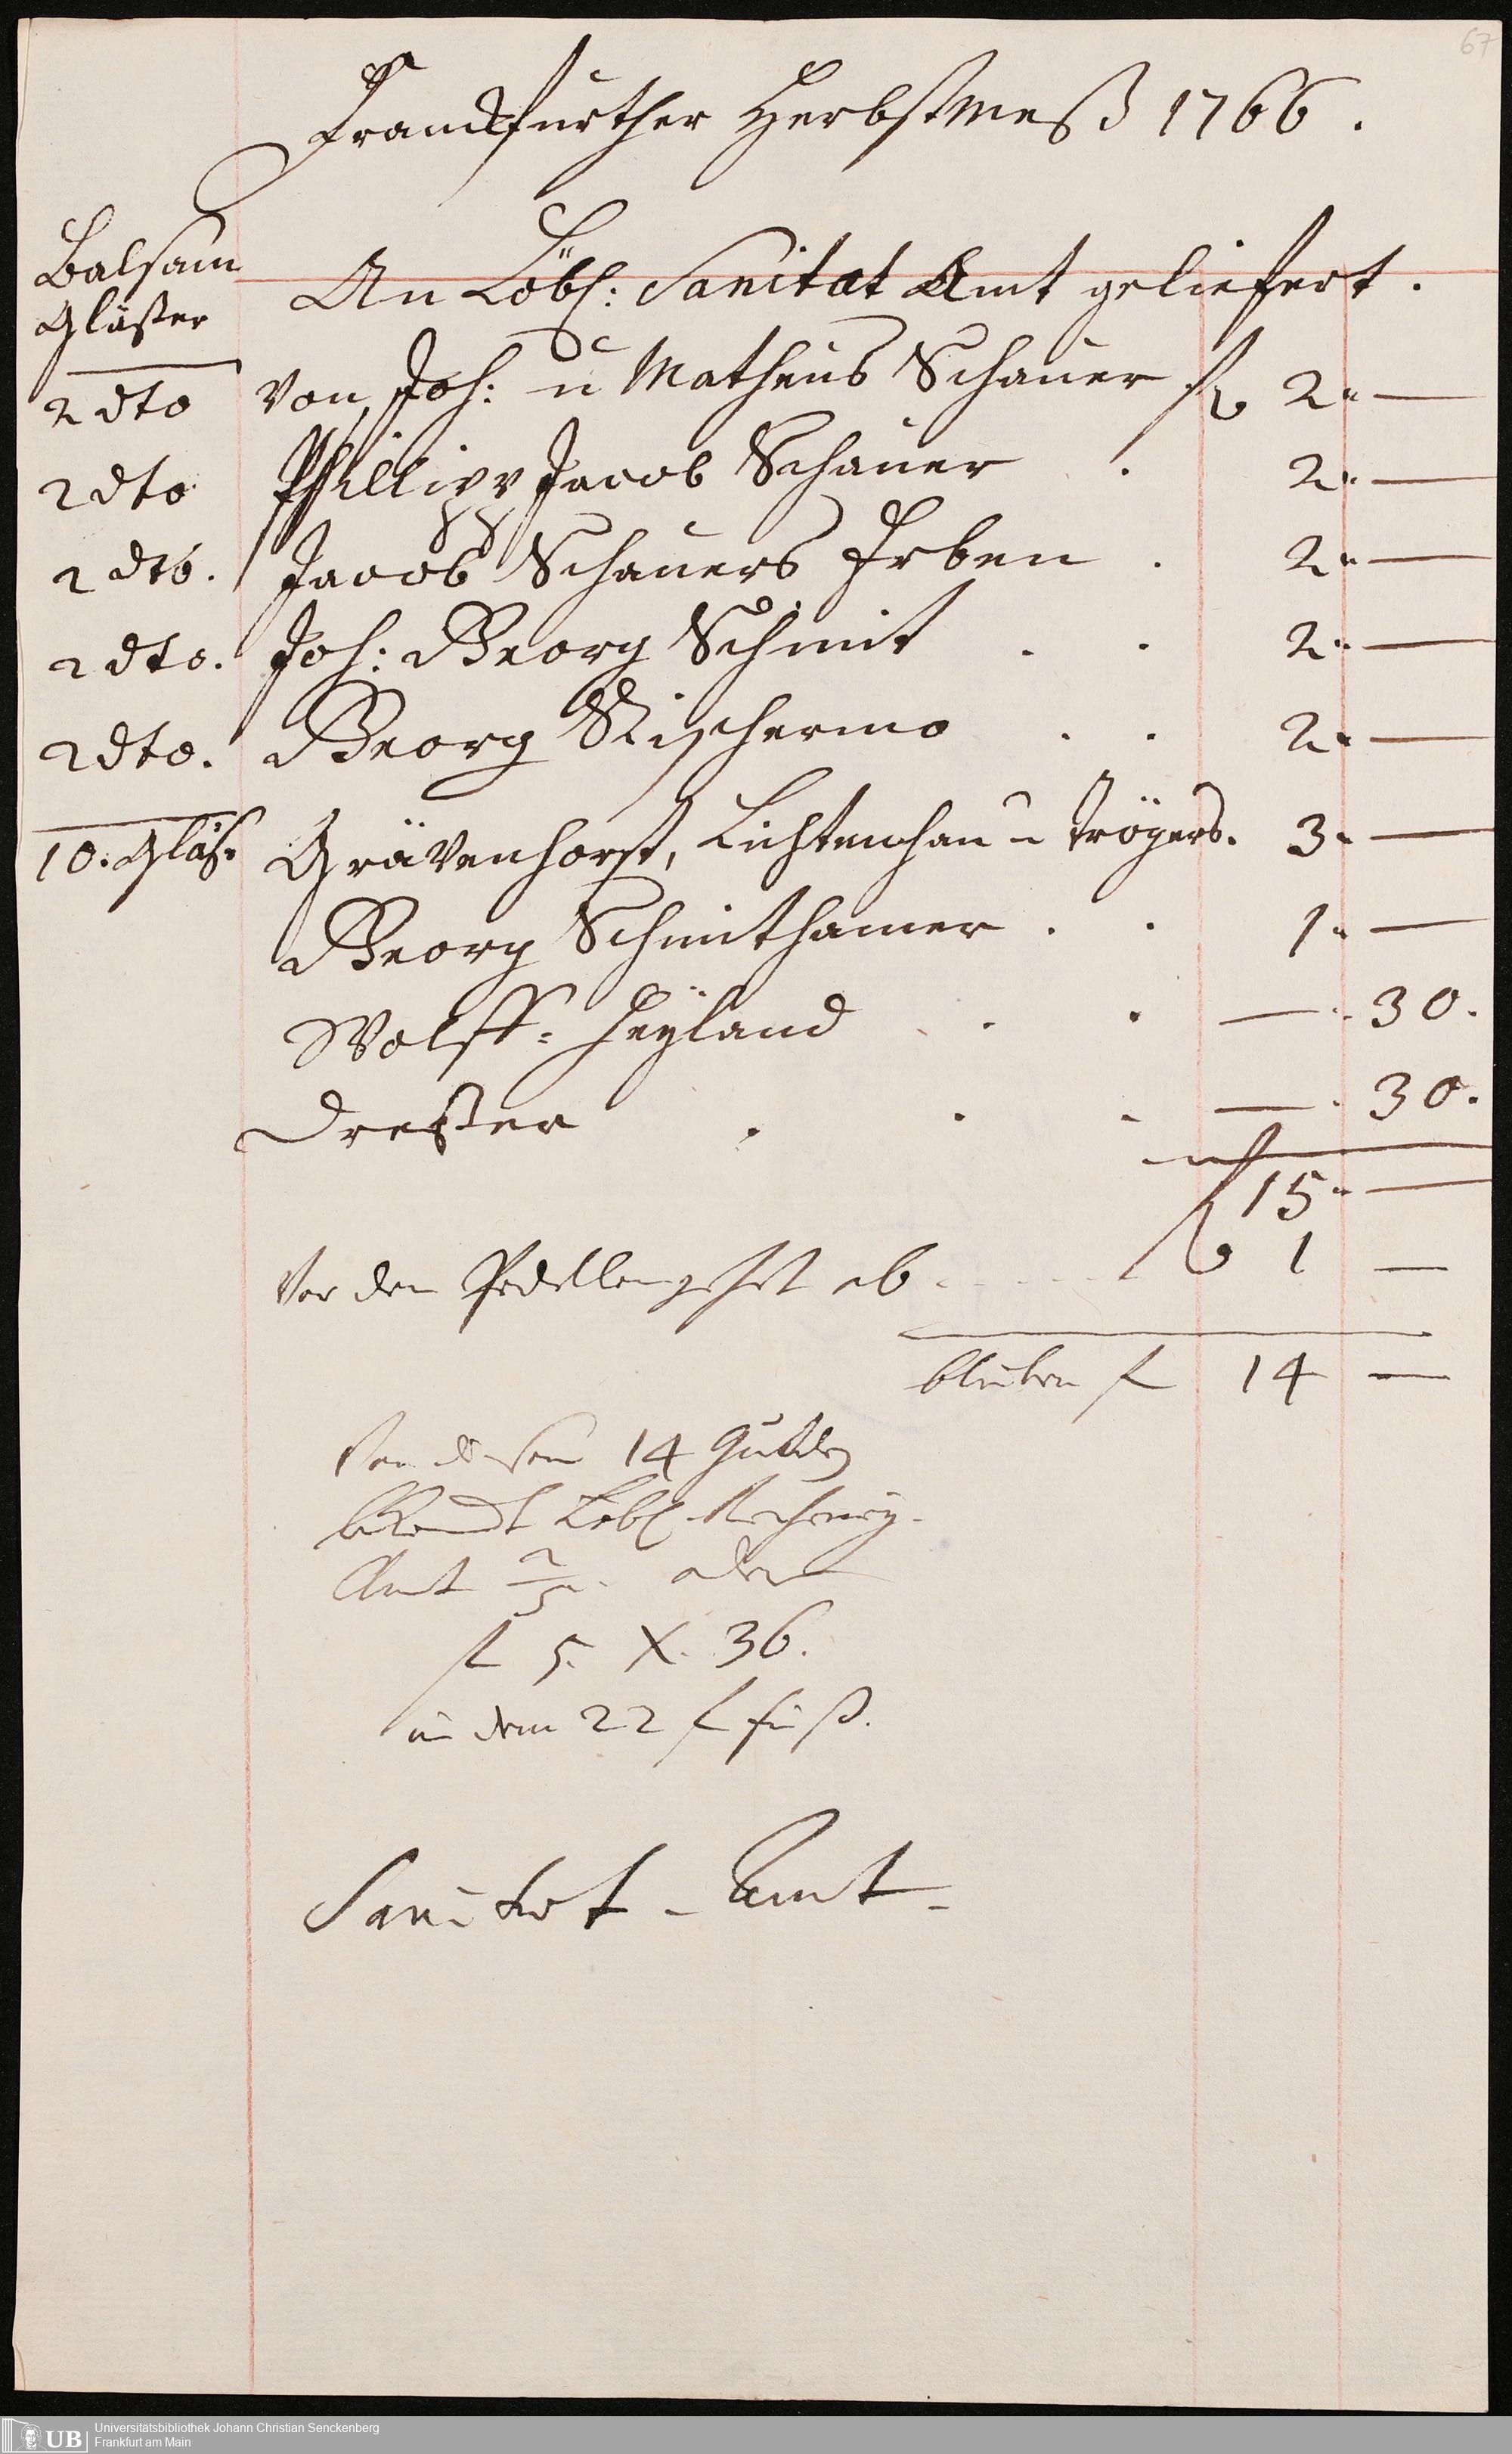 67
Franckfurther Herbstmeß 1766.
Balsam
Gläßer
An Löbl: Sanitat Amt geliefert.
2 dto von Joh: u Matheus Schauer f 2 —
2 dto Phillipp Jacob Schauer . 2 —
2 dto. Jacob Schauers Erben . 2 —
2 dto. Joh: Georg Schmit . . 2 —
2 dto. Georg . . 2 —
10. Gläß. Grävenhorst, Lichtenhan u Trögers. 3 —
Georg Schmithamer . . 1 —
Wolff: Heÿland . . — 30.
Dreßer . . . — 30.
f 15 —
Vor den Pedellen gehet ab . . . . . f 1 —
bleiben f 14 —
Von diesen 14 Gulden
Löbl. Rechney-
Amt 2/5. oder
f 5. X. 36.
in dem 22 f fuß.
Sanitat-Amt.
UB
Universitätsbibliothek Johann Christian Senckenberg
Frankfurt am Main